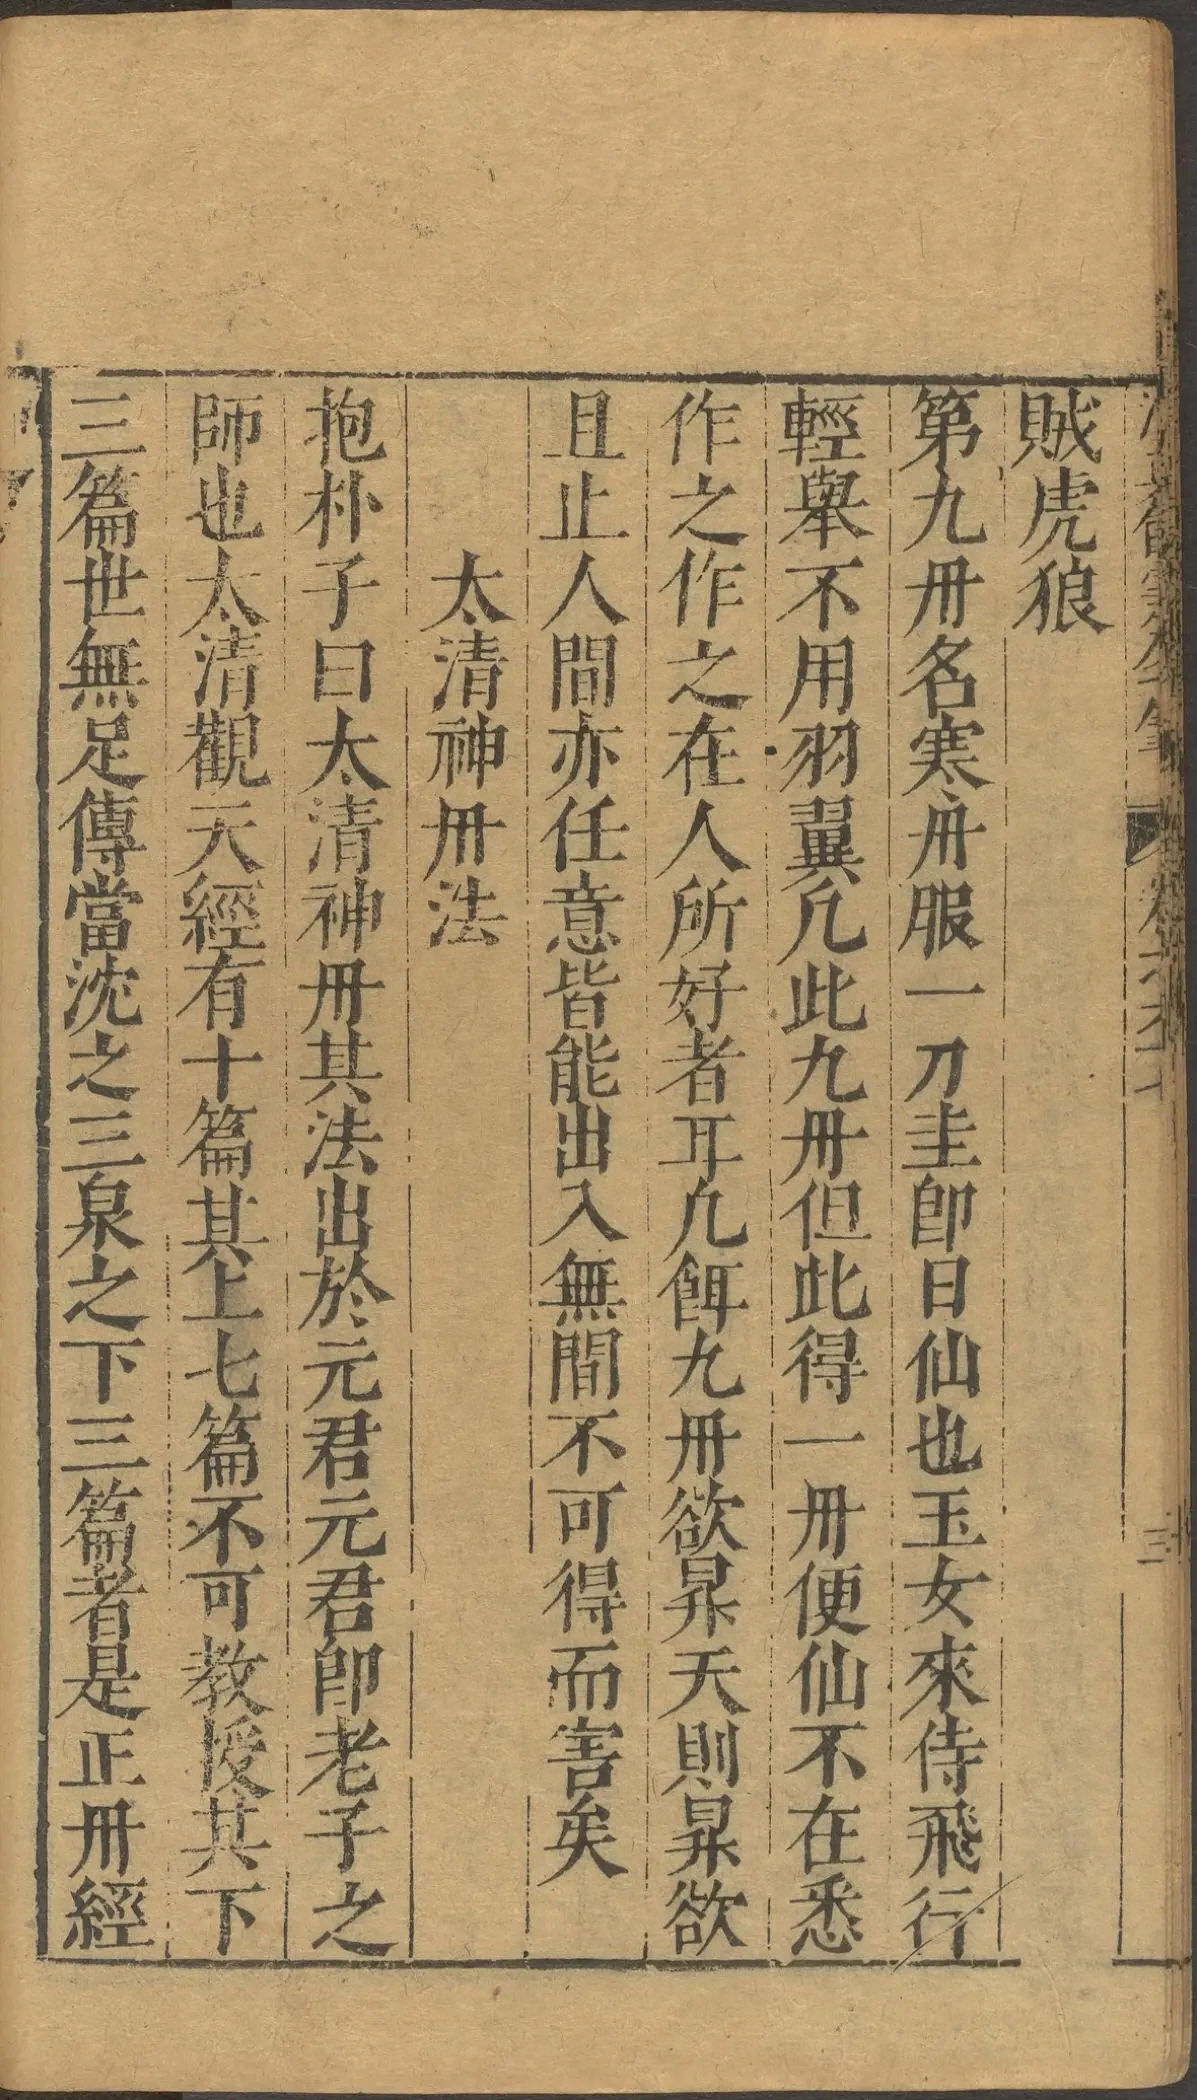 賊虎狼
第九丹名寒丹服一刀圭卽日仙也玉女來侍飛行
輕舉不用羽翼凡此九丹但此得一丹便仙不在悉
作之作之在人所好者耳凡餌九丹欲昇天則昇欲
且止人間亦任意皆能出入無間不可得而害矣
太清神丹法
抱朴子曰太清神丹其法出於元君元君卽老子之
師也太清觀天經有十篇其上七篇不可教授其下
三篇世無足傳當沈之三泉之下三篇者是正丹經